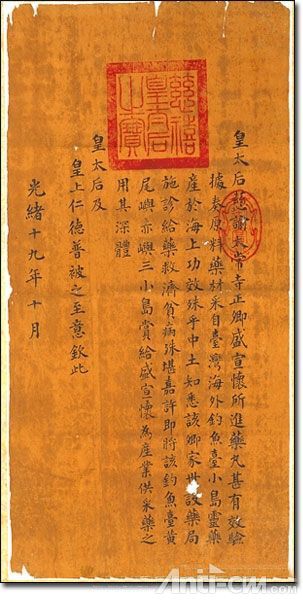 慈禧
皇后
之寶
皇太后慈諭太常寺正卿盛宣懷所進藥丸甚有效驗
據奏原料藥材采自臺灣海外釣魚臺小島靈藥
產於海上功效殊乎中土知悉該卿家世設藥局
施診給藥救濟貧病殊堪嘉許即將該釣魚臺黃
尾嶼赤嶼三小島賞給盛宣懷為產業供采藥之
用其深體
皇太后及
皇上仁德普被之至意欽此
光緒十九年十月
Anti-cnn.com